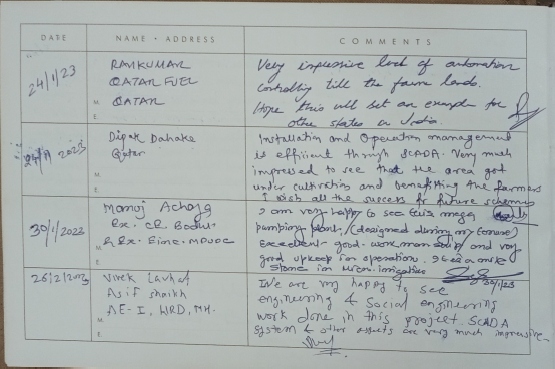 DATE NAME • ADDRESS COMMENTS
24/1/23
RAMKUMAR
QATAR FUEL
QATAR
M.
E.
Very impressive look of automation
controlling till the farm lands.
Hope this will set an example for
other states in India.
2023
Dipak Dahake
Qatar
M.
E.
Installation and Operation management
is efficient through SCADA. Very much
impressed to see that the area got
under cultivation and benefitting the farmers
I wish all the success for future schemes
30/1/2023
Manoj
Ex.
& Ex.
M.
E.
I am very happy to see this mega
pumping plant, (designed during my tenure)
Excellent good work and very
good upkeep in operation.
stone in micro irrigation
30/1/23
Vivek
Asif Shaikh
AE-I, WRD, MH.
M.
E.
We are very happy to see
engineering & Social engineering
work done in this project. SCADA
system & other assets are very much impressive.